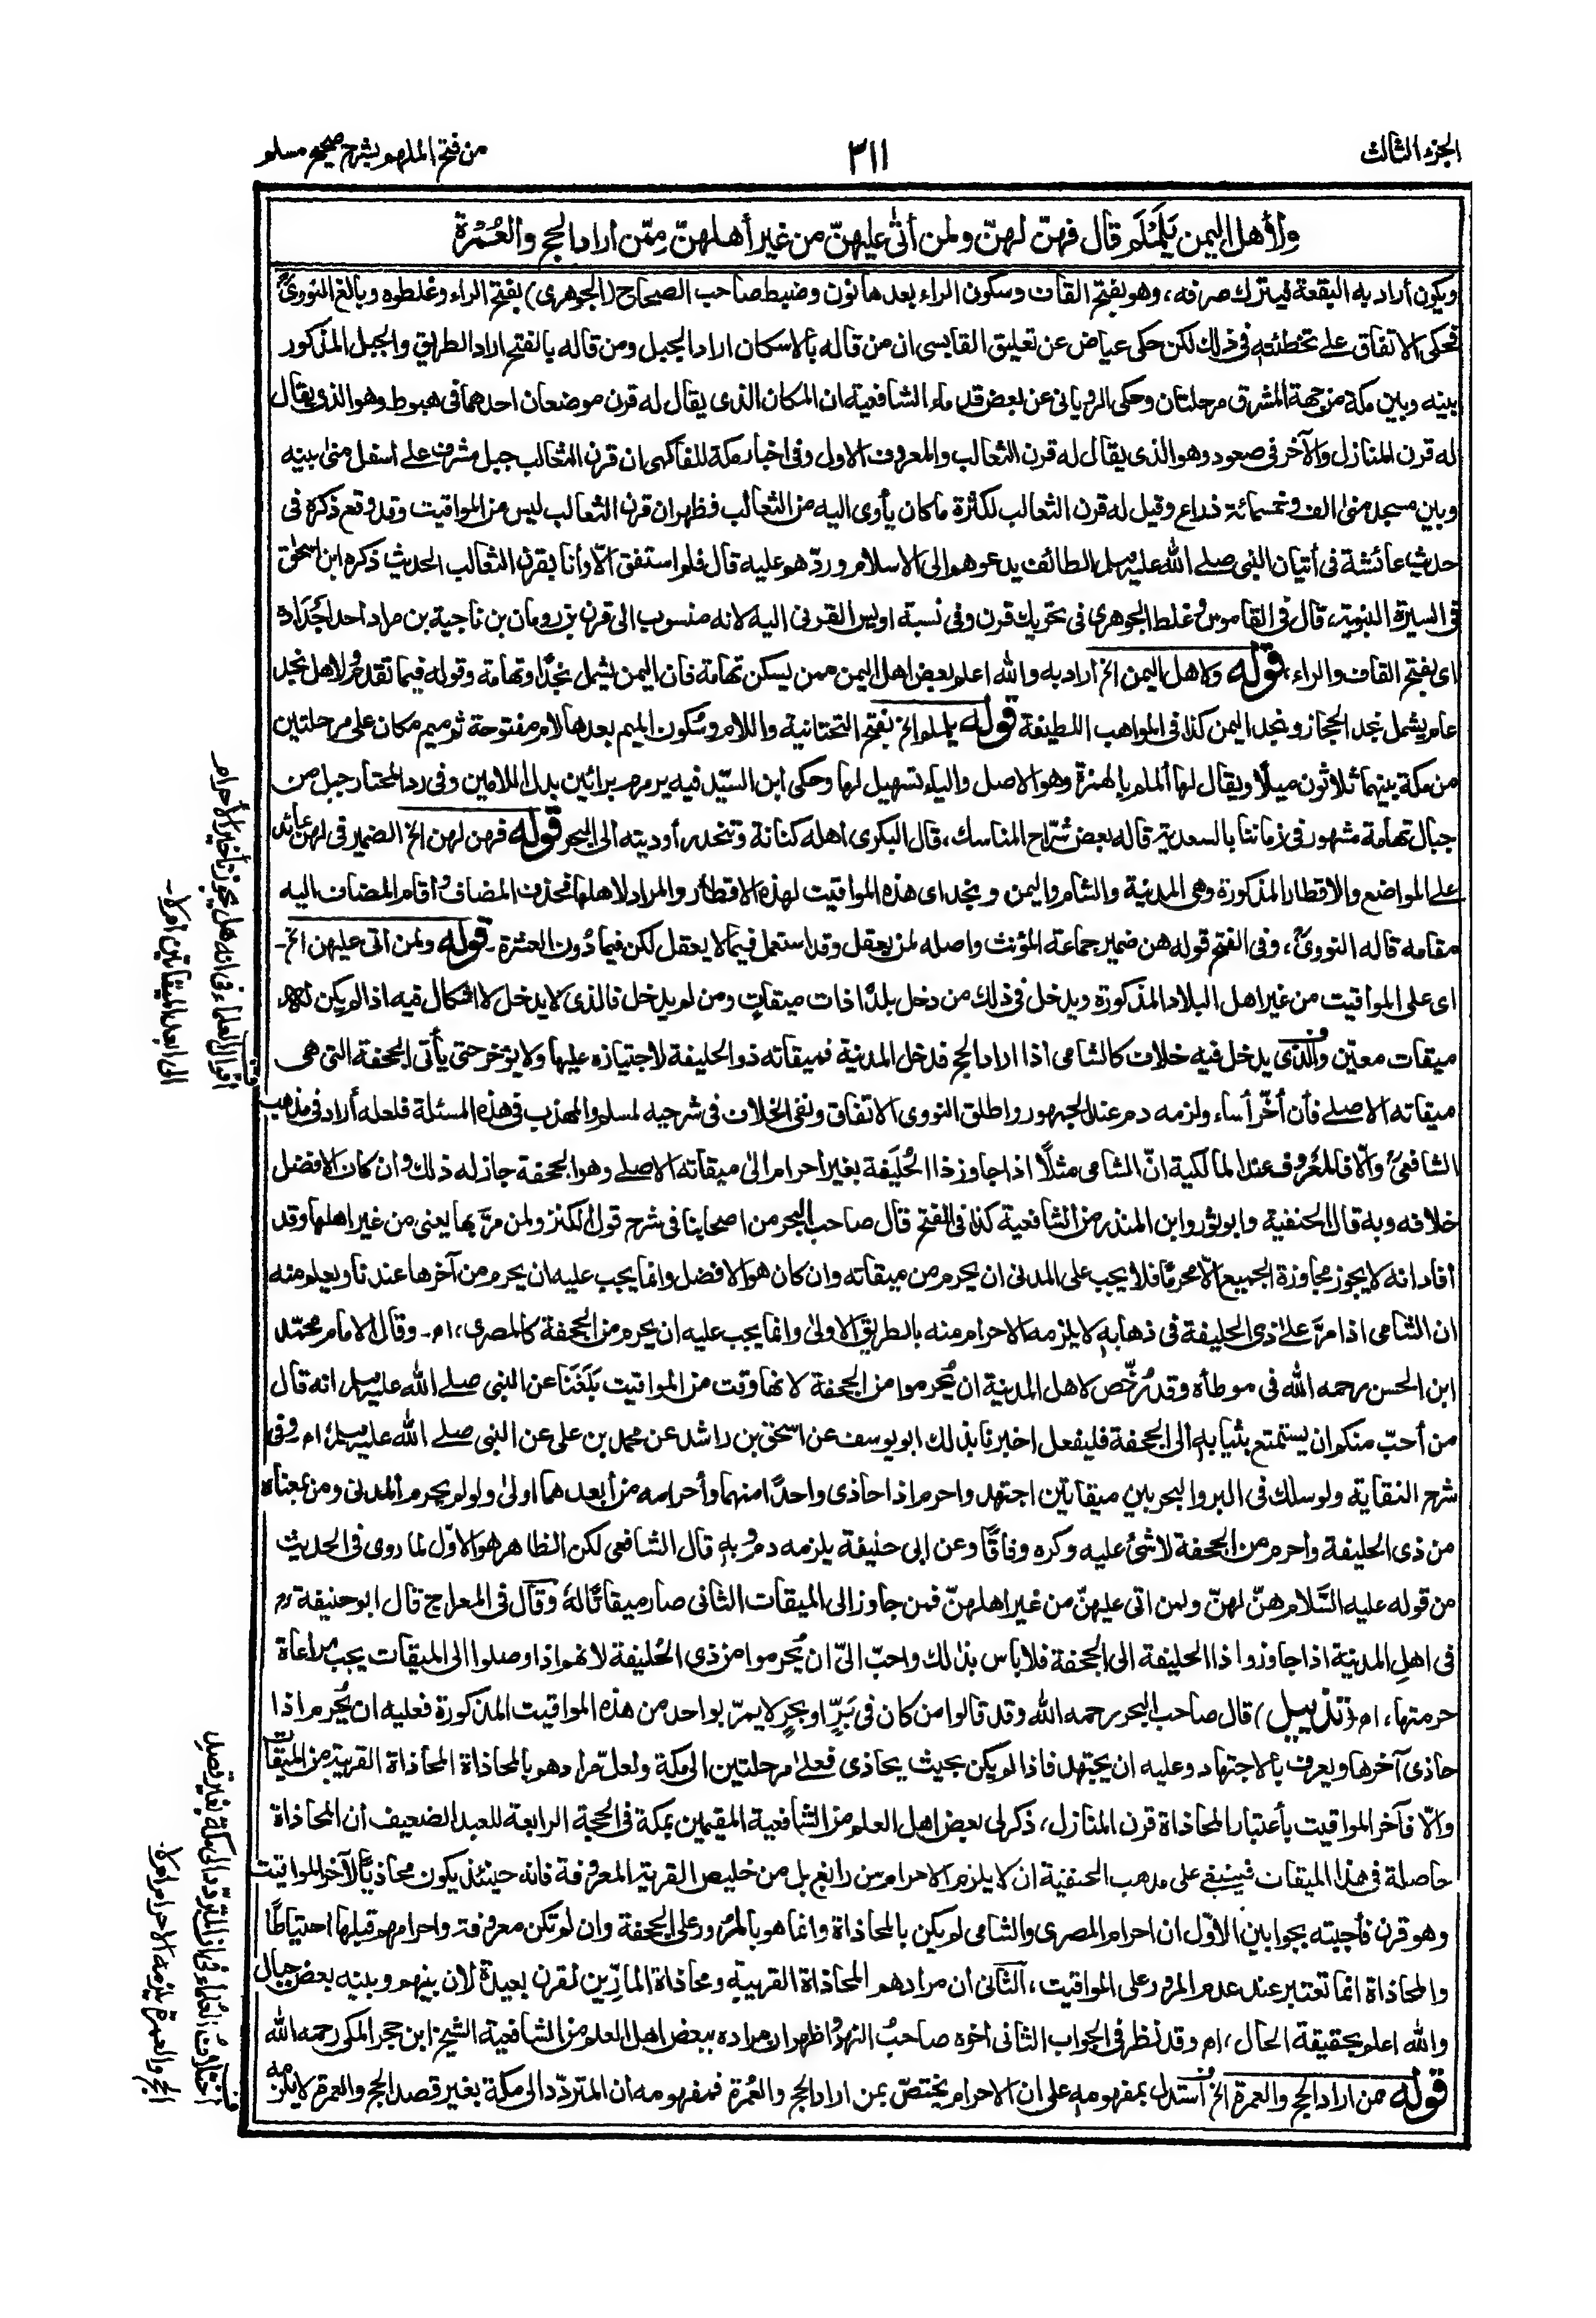 الجزء الثالث
٣١١
من فتح الملهم بشرح صحيح مسلم
ولأهل اليمن يَلَمْلَم قال فهنّ لهنّ ولمن أتى عليهنّ من غير أهلهنّ مِمّن اراد الحج والعُمْرة
ويكون أراد به البقعة فيترك صرفه، وهو بفتح القاف وسكون الراء بعدها نون وضبط صاحب الصحاح (الجوهرى) بفتح الراء وغلطوه وبالغ النووىّ
فحكى الاتفاق على تخطئته فى ذلك لكن حكى عياض عن تعليق القابسى ان من قاله بالاسكان اراد الجبل ومن قاله بالفتح اراد الطريق والجبل المذكور
بينه وبين مكة من جهة المشرق مرحلتان وحكى الرويانى عن بعض قدماء الشافعية ان المكان الذى يقال له قرن موضعان احدهما فى هبوط وهو الذى يقال
له قرن المنازل والآخر فى صعود وهو الذى يقال له قرن الثعالب والمعروف الاول وفى اخبار مكة للفاكهى ان قرن الثعالب جبل مشرف على اسفل منى بينه
وبين مسجد منى الف وخمسمائة ذراع وقيل له قرن الثعالب لكثرة ما كان يأوى اليه من الثعالب فظهر ان قرن الثعالب ليس من المواقيت وقد وقع ذكره فى
حديث عائشة فى أتيان النبى صلى الله عليه وسلم الطائف يدعوهم الى الاسلام وردّهم عليه قال فلم استفق الّا وأنا بقرن الثعالب الحديث ذكره ابن اسحٰق
فى السيرة النبوية، قال فى القاموس وغلط الجوهرى فى تحريك قرن وفى نسبة اويس القرنى اليه لانه منسوب الى قرن بن رومان بن ناجية بن مراد احد اجداده
اى بفتح القاف والراء، قوله ولاهل اليمن الخ اراد به والله اعلم بعض اهل اليمن ممن يسكن تهامة فان اليمن يشمل نجدًا وتهامة وقوله فيما تقدم ولاهل نجد
عام يشمل نجد الحجاز ونجد اليمن كذا فى المواهب اللطيفة قوله يلملم الخ بفتح التحتانية واللام وسكون الميم بعدها لام مفتوحة ثم ميم مكان على مرحلتين
من مكة بينهما ثلاثون ميلًا ويقال لها ألملم بالهمزة وهو الاصل والياء تسهيل لها وحكى ابن السيّد فيه يرمرم برائين بدل اللامين وفى رد المحتار جبل من
جبال تهامة مشهور فى زماننا بالسعدية قاله بعض شرّاح المناسك، قال البكرى اهله كنانة وتنحدر أوديته الى البحر قوله فهن لهن الخ الضمير فى لهن عائد
على المواضع والاقطار المذكورة وهى المدينة والشام واليمن ونجد اى هذه المواقيت لهذه الاقطار والمراد لاهلها فحذف المضاف وأقام المضاف اليه
مقامه قاله النووىّ، وفى الفتح قوله هن ضمير جماعة المؤنث واصله لمن يعقل وقد استعمل فيما لا يعقل لكن فيما دُون العشرة - قوله ولمن اتى عليهن الخ -
اى على المواقيت من غير اهل البلاد المذكورة ويدخل فى ذلك من دخل بلدًا ذات ميقاتٍ ومن لم يدخل فالذى لا يدخل لا اشكال فيه اذا لم يكن له
ميقات معين والذى يدخل فيه خلاف كالشامى اذا اراد الحج فدخل المدينة فميقاته ذو الحليفة لاجتيازه عليها ولا يؤخر حتى يأتى الجحفة التى هى
ميقاته الاصلى فأن أخّر أساء ولزمه دم عند الجمهور واطلق النووى الاتفاق ونفى الخلاف فى شرحيه لمسلم والمهذب فى هذه المسئلة فلعله أراد فى مذهب
الشافعىّ والّا فالمعروف عند المالكية انّ الشامى مثلًا اذا جاوز ذا الحُلَيفة بغير احرام الىٰ ميقاته الاصلى وهو الجحفة جاز له ذلك وان كان الافضل
خلافه وبه قال الحنفية وابو ثور وابن المنذر من الشافعية كذا فى الفتح قال صاحب البحر من اصحابنا فى شرح قول الكنز ولمن مرّ بها يعنى من غير اهلها وقد
افاد انه لا يجوز مجاوزة الجميع الّا محرمًا فلا يجب على المدنى ان يحرم من ميقاته وان كان هو الافضل وانما يجب عليه ان يحرم من آخرها عندنا ويعلم منه
ان الشامى اذا مرّ على ذى الحليفة فى ذهابهٖ لا يلزمه الاحرام منه بالطريق الاولىٰ وانما يجب عليه ان يحرم من الجحفة كالمصرى، اھ - وقال الامام محمّد
ابن الحسن رحمه الله فى موطأه وقد رُخّص لاهل المدينة ان يُحرموا من الجحفة لانها وقت من المواقيت بَلَغَنا عن النبى صلى الله عليه وسلم انه قال
من أحبّ منكم ان يستمتع بثيابهٖ الى الجحفة فليفعل اخبرنا بذلك ابو يوسف عن اسحٰق بن راشد عن محمد بن على عن النبى صلى الله عليه وسلم، اھ وفى
شرح النقاية ولو سلك فى البر والبحر بين ميقاتين اجتهد واحرم اذا حاذى واحدًا منهما وأحرامه من أبعدهما اولىٰ ولو لم يحرم المدنى ومن بمعناه
من ذى الحليفة وأحرم من الجحفة لا شئ عليه وكره وفاقًا وعن ابى حنيفة يلزمه دم وبهٖ قال الشافعى لكن الظاهر هو الاوّل لما روى فى الحديث
من قوله عليه السَّلام هنّ لهنّ ولمن اتى عليهنّ من غير اهلهنّ فمن جاوز الى الميقات الثانى صار ميقاتًا له وقال فى المعراج قال ابو حنيفة رح
فى اهل المدينة اذا جاوزوا ذا الحليفة الى الجحفة فلا باس بذٰلك واحبّ الىّ ان يُحرموا من ذى الحُليفة لانهم اذا وصلوا الى الميقات يجب مراعاة
حرمتها، اھ (تذييل) قال صاحب البحر رحمه الله وقد قالوا من كان فى بَرٍّ او بحرٍ لا يمرّ بواحد من هذه المواقيت المذكورة فعليه ان يُحرم اذا
حاذى آخرها ويعرف بالاجتهاد وعليه ان يجتهد فاذا لم يكن بحيث يحاذى فعلىٰ مرحلتين الى مكة ولعلّ مرادهم بالمحاذاة المحاذاة القريبة من الميقات
والّا فآخر المواقيت بأعتبار المحاذاة قرن المنازل، ذكر لى بعض اهل العلم من الشافعية المقيمين بمكة فى الحجة الرابعة للعبد الضعيف أن المحاذاة
حاصلة فى هذا الميقات فينبغى على مذهب الحنفية ان لا يلزم الاحرام من رابغ بل من خليص القرية المعروفة فانه حينئذ يكون محاذيًا لآخر المواقيت
وهو قرن فأجبته بجوابين الاوّل ان احرام المصرى والشامى لم يكن بالمحاذاة وانما هو بالمرور على الجحفة وان لم تكن معروفة واحرامهم قبلها احتياطًا
والمحاذاة انما تعتبر عند عدم المرور على المواقيت، الثانى ان مرادهم المحاذاة القريبة ومحاذاة المارّين لقرن بعيدة لان بينهم وبينه بعض جبال
والله اعلم بحقيقة الحال، اھ وقد نظر فى الجواب الثانى أخوه صاحبُ النهر واظهر ان مراده ببعض اهل العلم من الشافعية الشيخ ابن حجر المكى رحمه الله
قوله ممن اراد الحج والعمرة الخ استدل بمفهومهٖ على ان الاحرام يختصّ بمن اراد الحج والعُمرة فمفهومه ان المتردّد الى مكة بغير قصد الحج والعمرة لا يلزمه
اقوال العلماء فى انه هل يجوز تأخير الأحرام
الى ابعد الميقاتين ام لا -
اختلاف العلماء فى ان المتردّد الى مكة بغير قصد
الحج والعمرة يلزمه الاحرام ام لا -